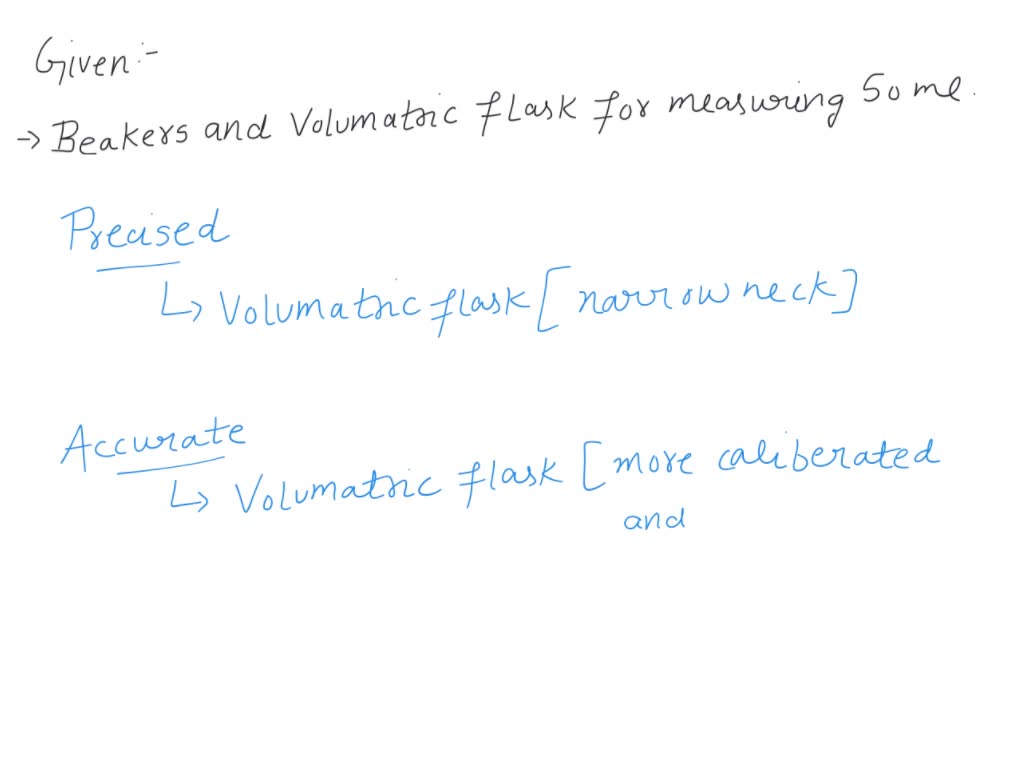 Given :-
→ Beakers and Volumatric flask for measuring 50 ml.
Precised
↳ Volumatric flask [narrow neck]
Accurate
↳ Volumatric flask [more caliberated
and